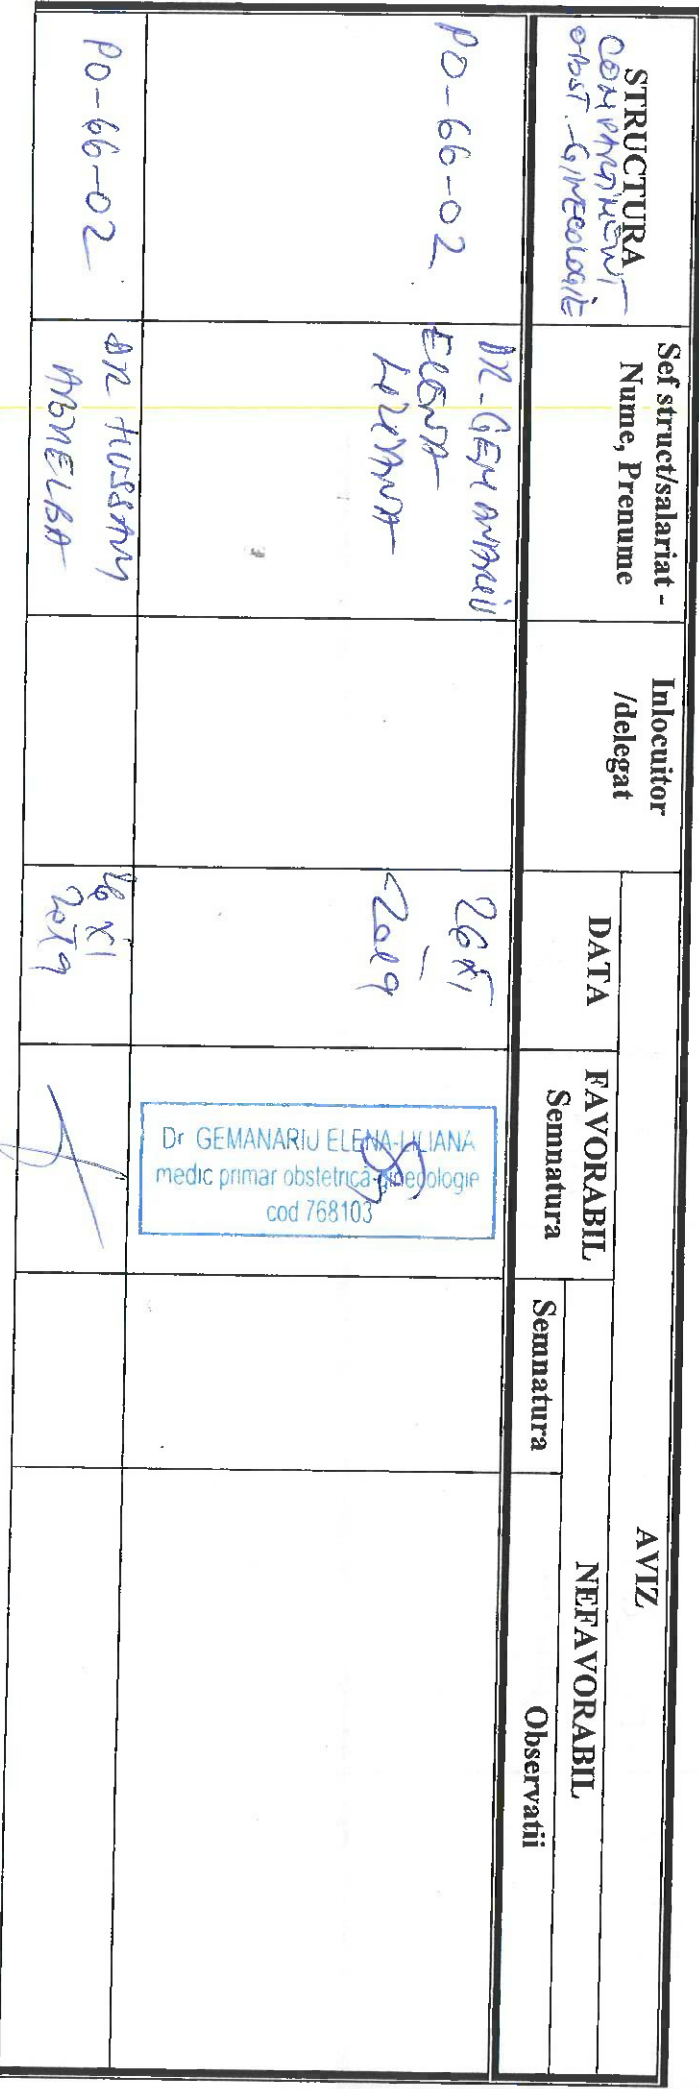 STRUCTURA
COMPARTIMENT
OBST.-GINECOLOGIE
Sef struct/salariat -
Nume, Prenume
Inlocuitor
/delegat
AVIZ
DATA
FAVORABIL
Semnatura
NEFAVORABIL
Semnatura
Observatii
PO-66-02
DR. GEMANARIU
ELENA
LILIANA
26 XI
2019
Dr GEMANARIU ELENA-LILIANA
medic primar obstetrică-ginecologie
cod 768103
PO-66-02
DR HUSSAM
26 XI
2019